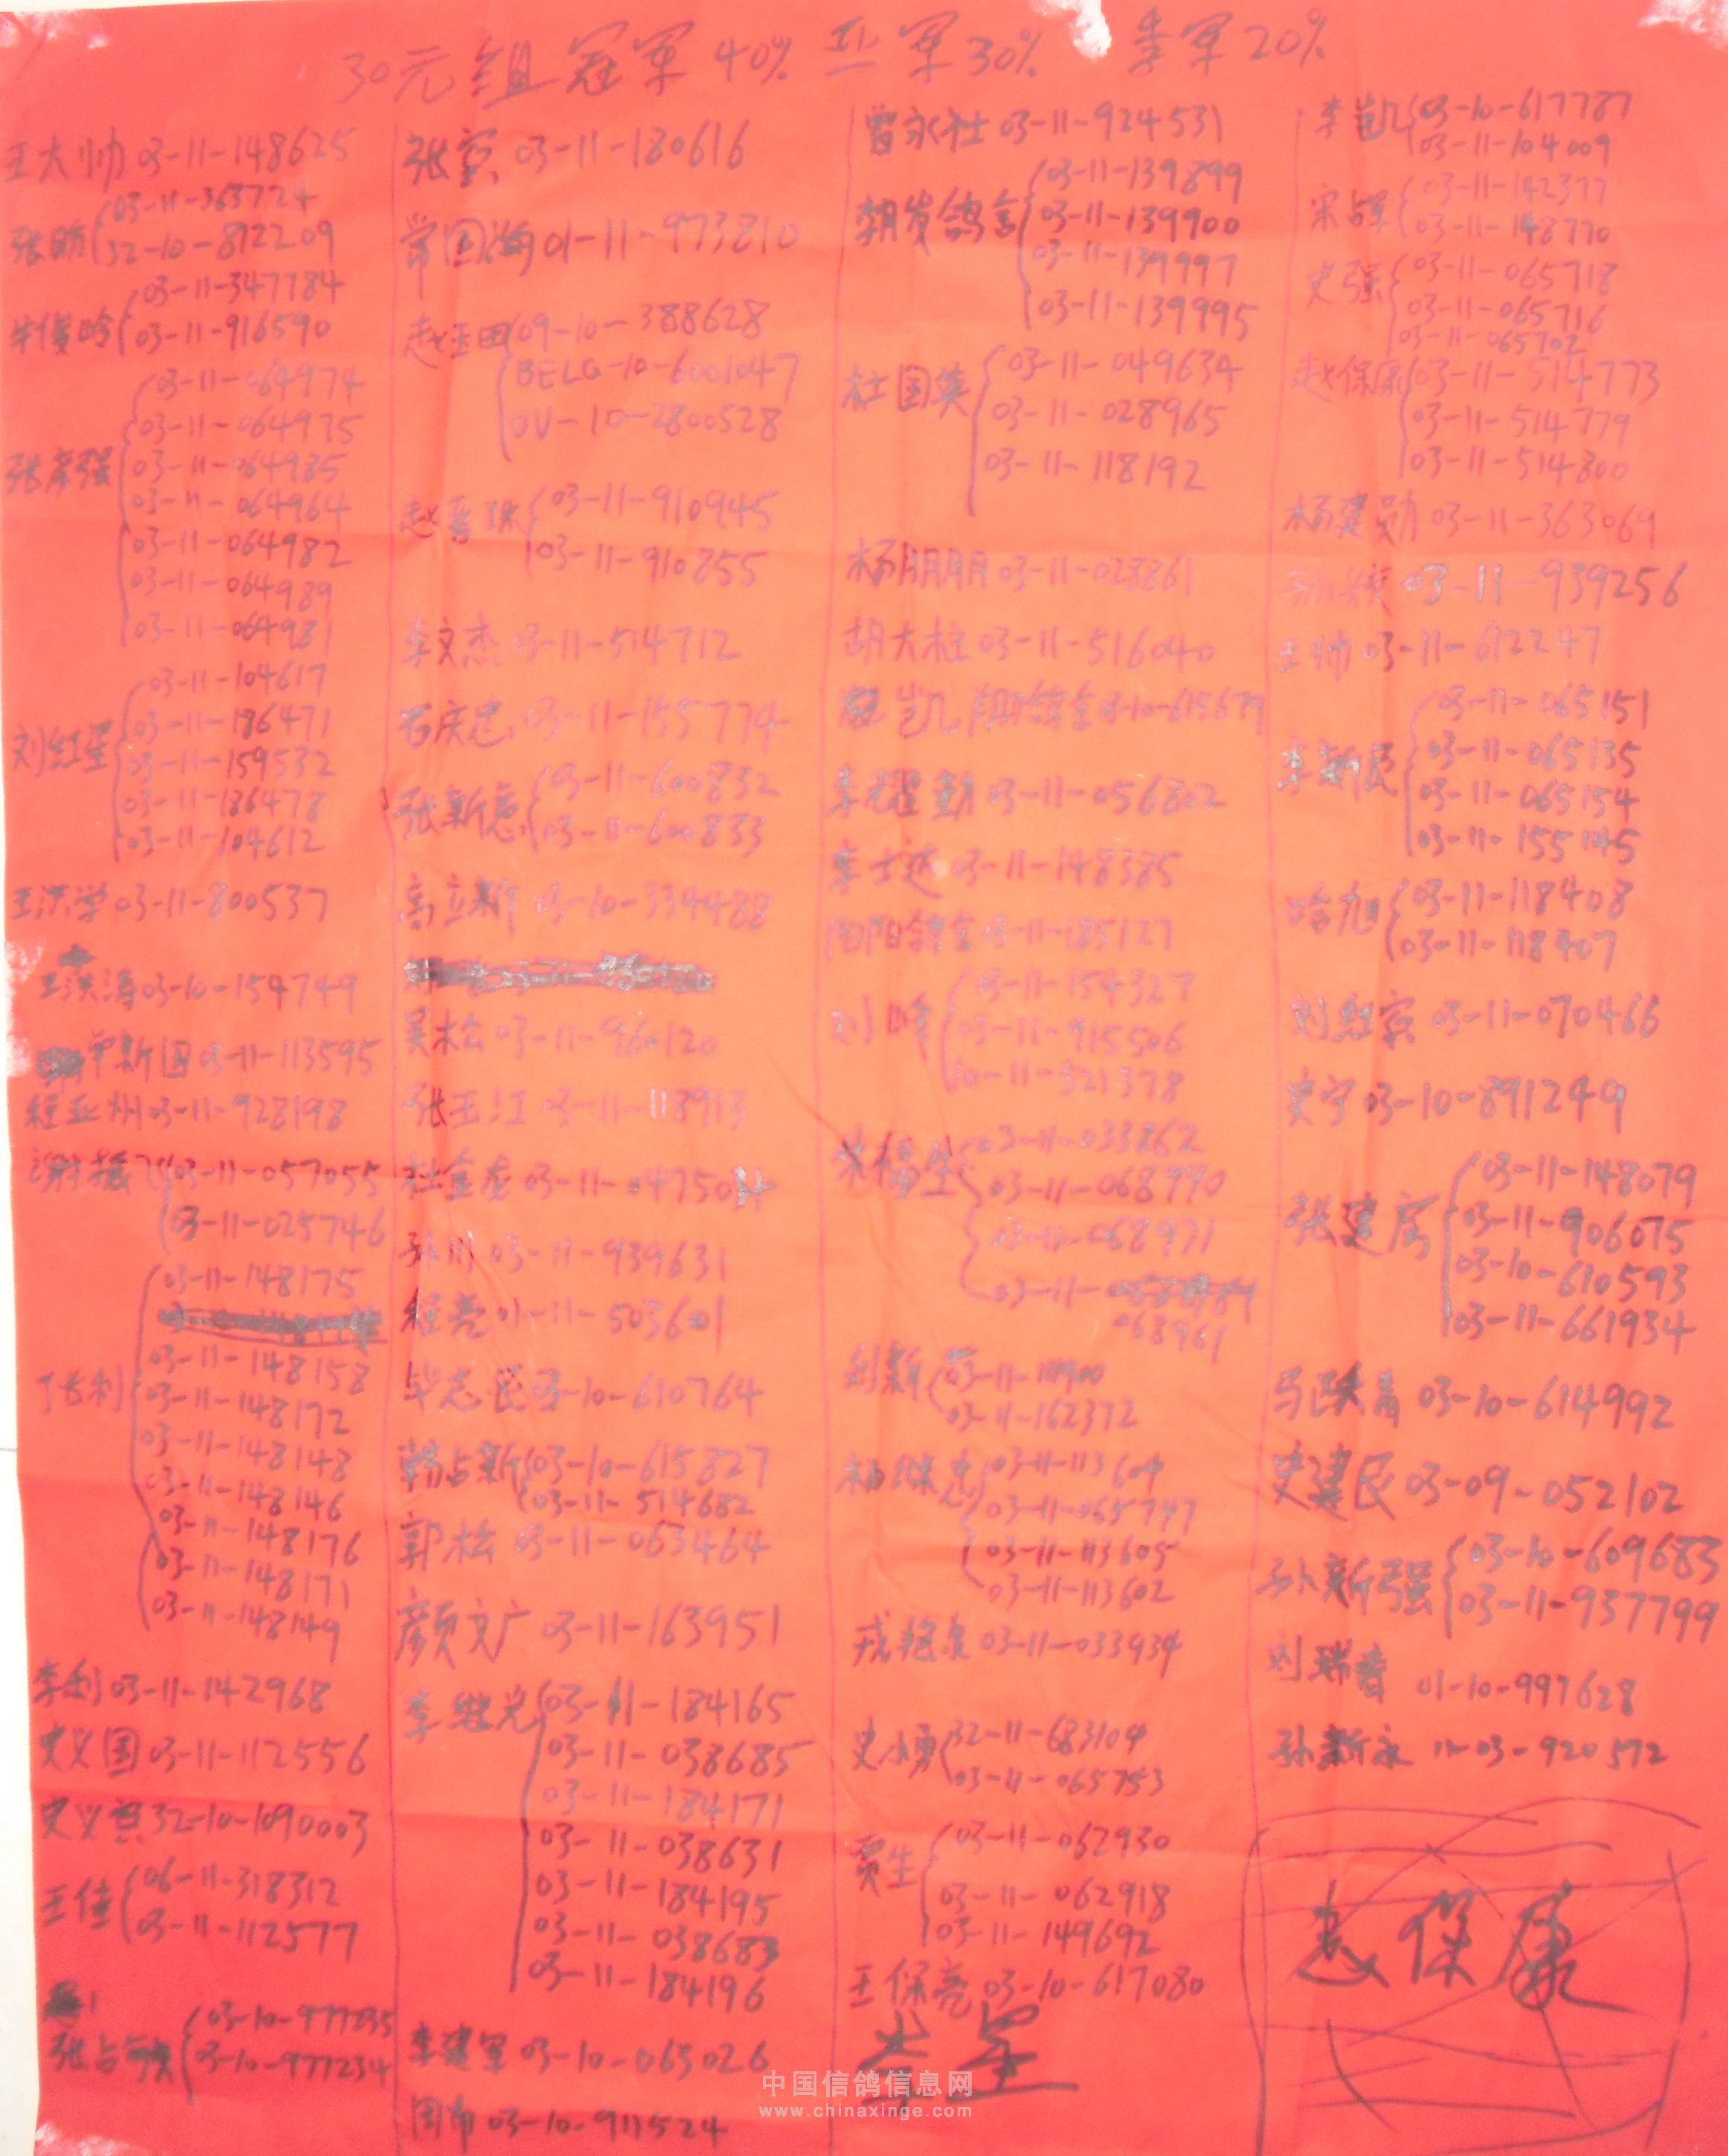 30元组 冠军40% 亚军30% 季军20%
王大帅 03-11-148625
张昉 03-11-363724
32-10-812209
03-11-347784
03-11-916590
03-11-064974
张彦强 03-11-064975
03-11-064985
03-11-064964
03-11-064982
03-11-064989
03-11-064981
03-11-104617
刘红星 03-11-186471
03-11-159532
03-11-186478
03-11-104612
王洪学 03-11-800537
王洪涛 03-10-154749
03-11-113595
程亚州 03-11-928198
谢振飞 03-11-057055
03-11-025746
03-11-148175
张利 03-11-148158
03-11-148172
03-11-148148
03-11-148146
03-11-148176
03-11-148171
03-11-148149
李钊 03-11-142968
史义国 03-11-112556
史义宾 32-10-1090003
王佳 06-11-318312
03-11-112577
03-10-977235
03-10-977234
张宾 03-11-180616
常国海 01-11-973810
赵玉田 09-10-388628
BELG-10-6001047
DV-10-2800528
赵晋珠 03-11-910945
03-11-910855
李文杰 03-11-514712
石庆忠 03-11-155774
张新德 03-11-600832
03-11-600833
高立新 03-10-334488
吴松 03-11-960120
张玉江 03-11-118913
杜金龙 03-11-04750
张川 03-11-939631
程亮 01-11-503601
毕志民 03-10-610764
韩占新 03-10-615827
03-11-514682
郭松 03-11-063464
颜文广 03-11-163951
李继光 03-11-184165
03-11-038685
03-11-184171
03-11-038631
03-11-184195
03-11-038683
03-11-184196
李建军 03-10-065026
周布 03-10-911524
曾永社 03-11-924531
翱发鸽舍 03-11-139899
03-11-139900
03-11-139997
03-11-139995
杜国英 03-11-049634
03-11-028965
03-11-118192
杨朋朋 03-11-028861
胡大柱 03-11-516040
凯翔鸽舍 03-10-615679
李耀勤 03-11-056802
李士达 03-11-148385
向阳鸽舍 03-11-185127
刘峰 03-11-154327
03-11-915506
10-11-521378
宋福生 03-11-033862
03-11-068990
03-11-068971
03-11-
068961
刘新 03-11-111900
03-11-162372
杨保忠 03-11-113604
03-11-065747
03-11-113605
03-11-113602
03-11-033934
史小勇 32-11-683104
03-11-065753
贾生 03-11-062930
03-11-062918
03-11-149692
王保亮 03-10-617080
李凯 03-10-617787
03-11-104009
宋占军 03-11-142377
03-11-148770
史强 03-11-065718
03-11-065716
03-11-065702
赵保康 03-11-514773
03-11-514779
03-11-514800
杨建勋 03-11-363069
03-11-939256
王帅 03-11-612247
03-11-065151
李新民 03-11-065135
03-11-065154
03-11-155145
哈旭 03-11-118408
03-11-118407
刘继宗 03-11-070466
史宁 03-10-891249
03-11-148079
03-11-906075
03-10-610593
03-11-661934
马跃青 03-10-614992
史建民 03-09-052102
孙新强 03-10-609683
03-11-937799
刘瑞春 01-10-997628
孙新永 11-03-920572
保康
中国信鸽信息网
www.chinaxinge.com